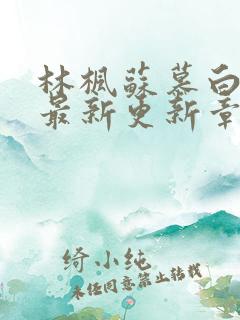 林楓蘇慕白
最新更新章
绮小纯
未经同意禁止转载